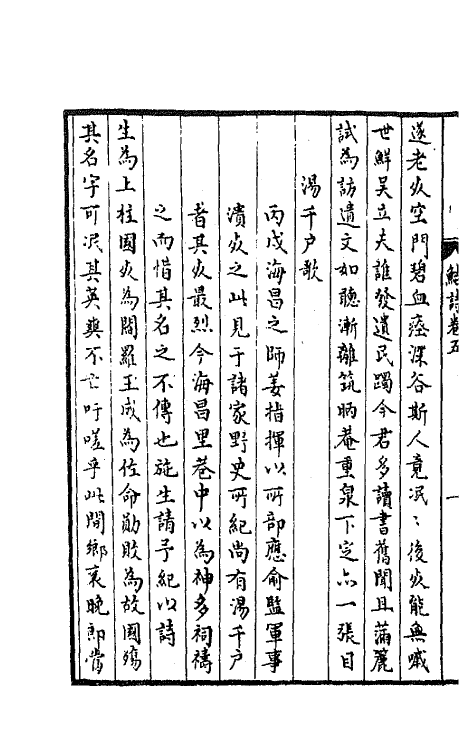 鮚詩卷五
一
遂老死空門碧血瘞深谷斯人竟泯﹕後死能無哦
世鮮吴立夫誰發遺民躅今君多讀書舊聞且蒲簏
試為訪遺文如聽漸離筑眪菴重泉下定亦一張目
湯千户歌
丙戌海昌之師姜指揮以所部應俞監軍事
潰死之此見于諸家野史所紀尚有湯千户
者其死最烈今海昌里巷中以為神多祠禱
之而惜其名之不傳也施生請予紀以詩
生為上柱國死為閻羅王成為佐命勛敗為故國殤
其名字可泯其英爽不亡吁嗟乎此間鄉衮晚郎當